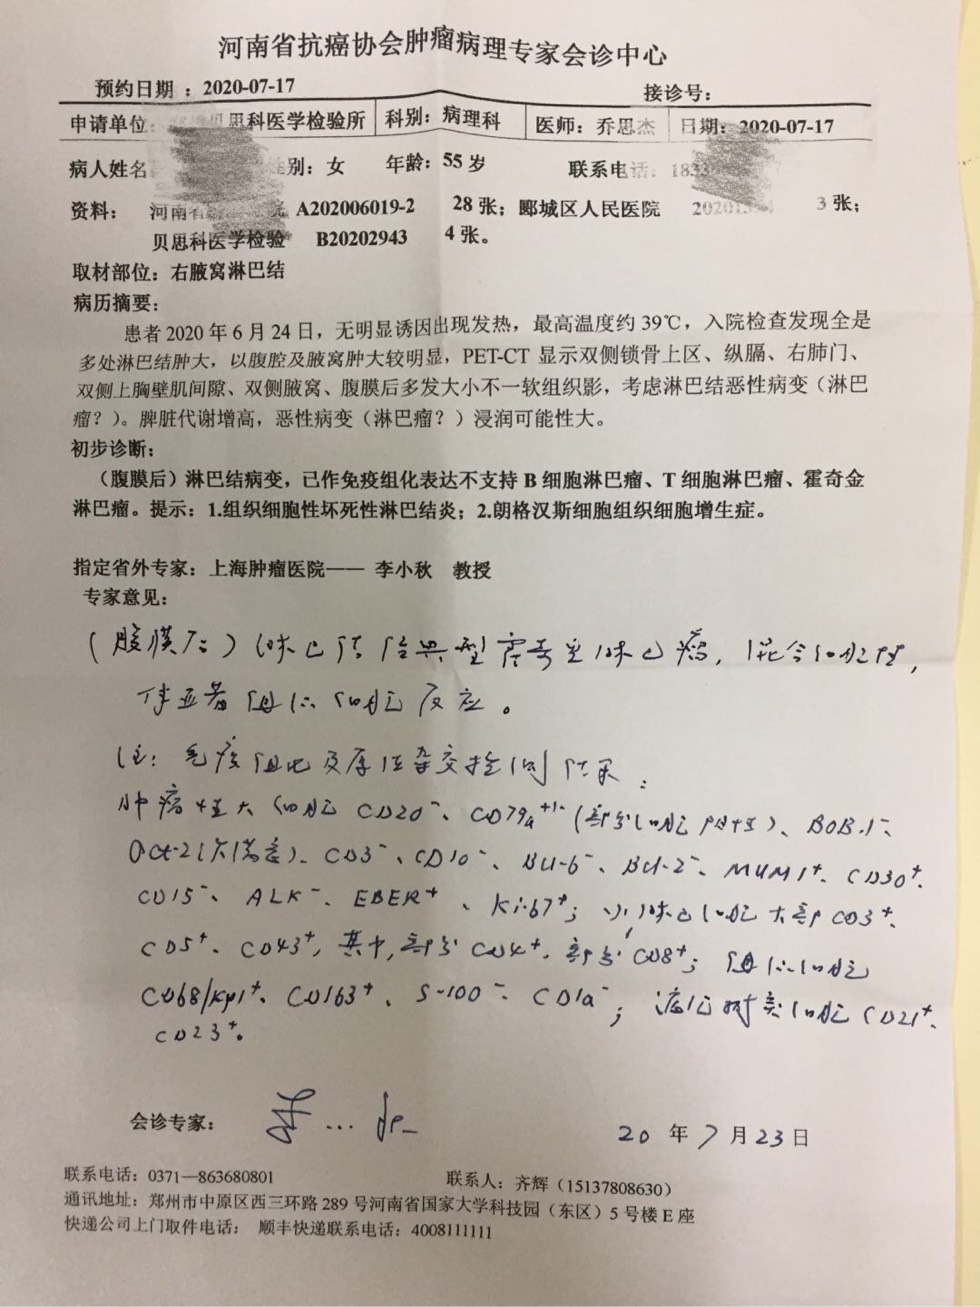 河南省抗癌协会肿瘤病理专家会诊中心
预约日期 ：2020-07-17 接诊号：
申请单位： 思科医学检验所 科别：病理科 医师：乔思杰 日期：2020-07-17
病人姓名 性别：女 年龄：55 岁 联系电话：
资料： 河南省 A202006019-2 28 张；郾城区人民医院 3 张；
贝思科医学检验 B20202943 4 张。
取材部位：右腋窝淋巴结
病历摘要：
患者 2020 年 6 月 24 日，无明显诱因出现发热，最高温度约 39℃，入院检查发现全是
多处淋巴结肿大，以腹腔及腋窝肿大较明显，PET-CT 显示双侧锁骨上区、纵膈、右肺门、
双侧上胸壁肌间隙、双侧腋窝、腹膜后多发大小不一软组织影，考虑淋巴结恶性病变（淋巴
瘤？）。脾脏代谢增高，恶性病变（淋巴瘤？）浸润可能性大。
初步诊断：
（腹膜后）淋巴结病变，已作免疫组化表达不支持 B 细胞淋巴瘤、T 细胞淋巴瘤、霍奇金
淋巴瘤。提示：1.组织细胞性坏死性淋巴结炎；2.朗格汉斯细胞组织细胞增生症。
指定省外专家：上海肿瘤医院—— 李小秋 教授
专家意见：
（腹膜后）淋巴结经典型霍奇金淋巴瘤，混合细胞型，
伴显著组织细胞反应。
注：免疫组化及原位杂交检测结果：
肿瘤性大细胞 CD20⁻、CD79a⁺/⁻（部分细胞阳性）、BOB.1⁻、
Oct-2（欠满意）、CD3⁻、CD10⁻、BCl-6⁻、BCl-2⁻、MUM1⁺、CD30⁺、
CD15⁻、ALK⁻、EBER⁺、Ki-67⁺；小淋巴细胞大部 CD3⁺、
CD5⁺、CD43⁺，其中，部分 CD4⁺，部分 CD8⁺；组织细胞
CD68/kp1⁺、CD163⁺、S-100⁻、CD1a⁻；滤泡树突细胞 CD21⁺、
CD23⁺。
会诊专家： 20 年 7 月 23 日
联系电话：0371—863680801 联系人：齐辉（15137808630）
通讯地址：郑州市中原区西三环路 289 号河南省国家大学科技园（东区）5 号楼 E 座
快递公司上门取件电话： 顺丰快递联系电话：4008111111